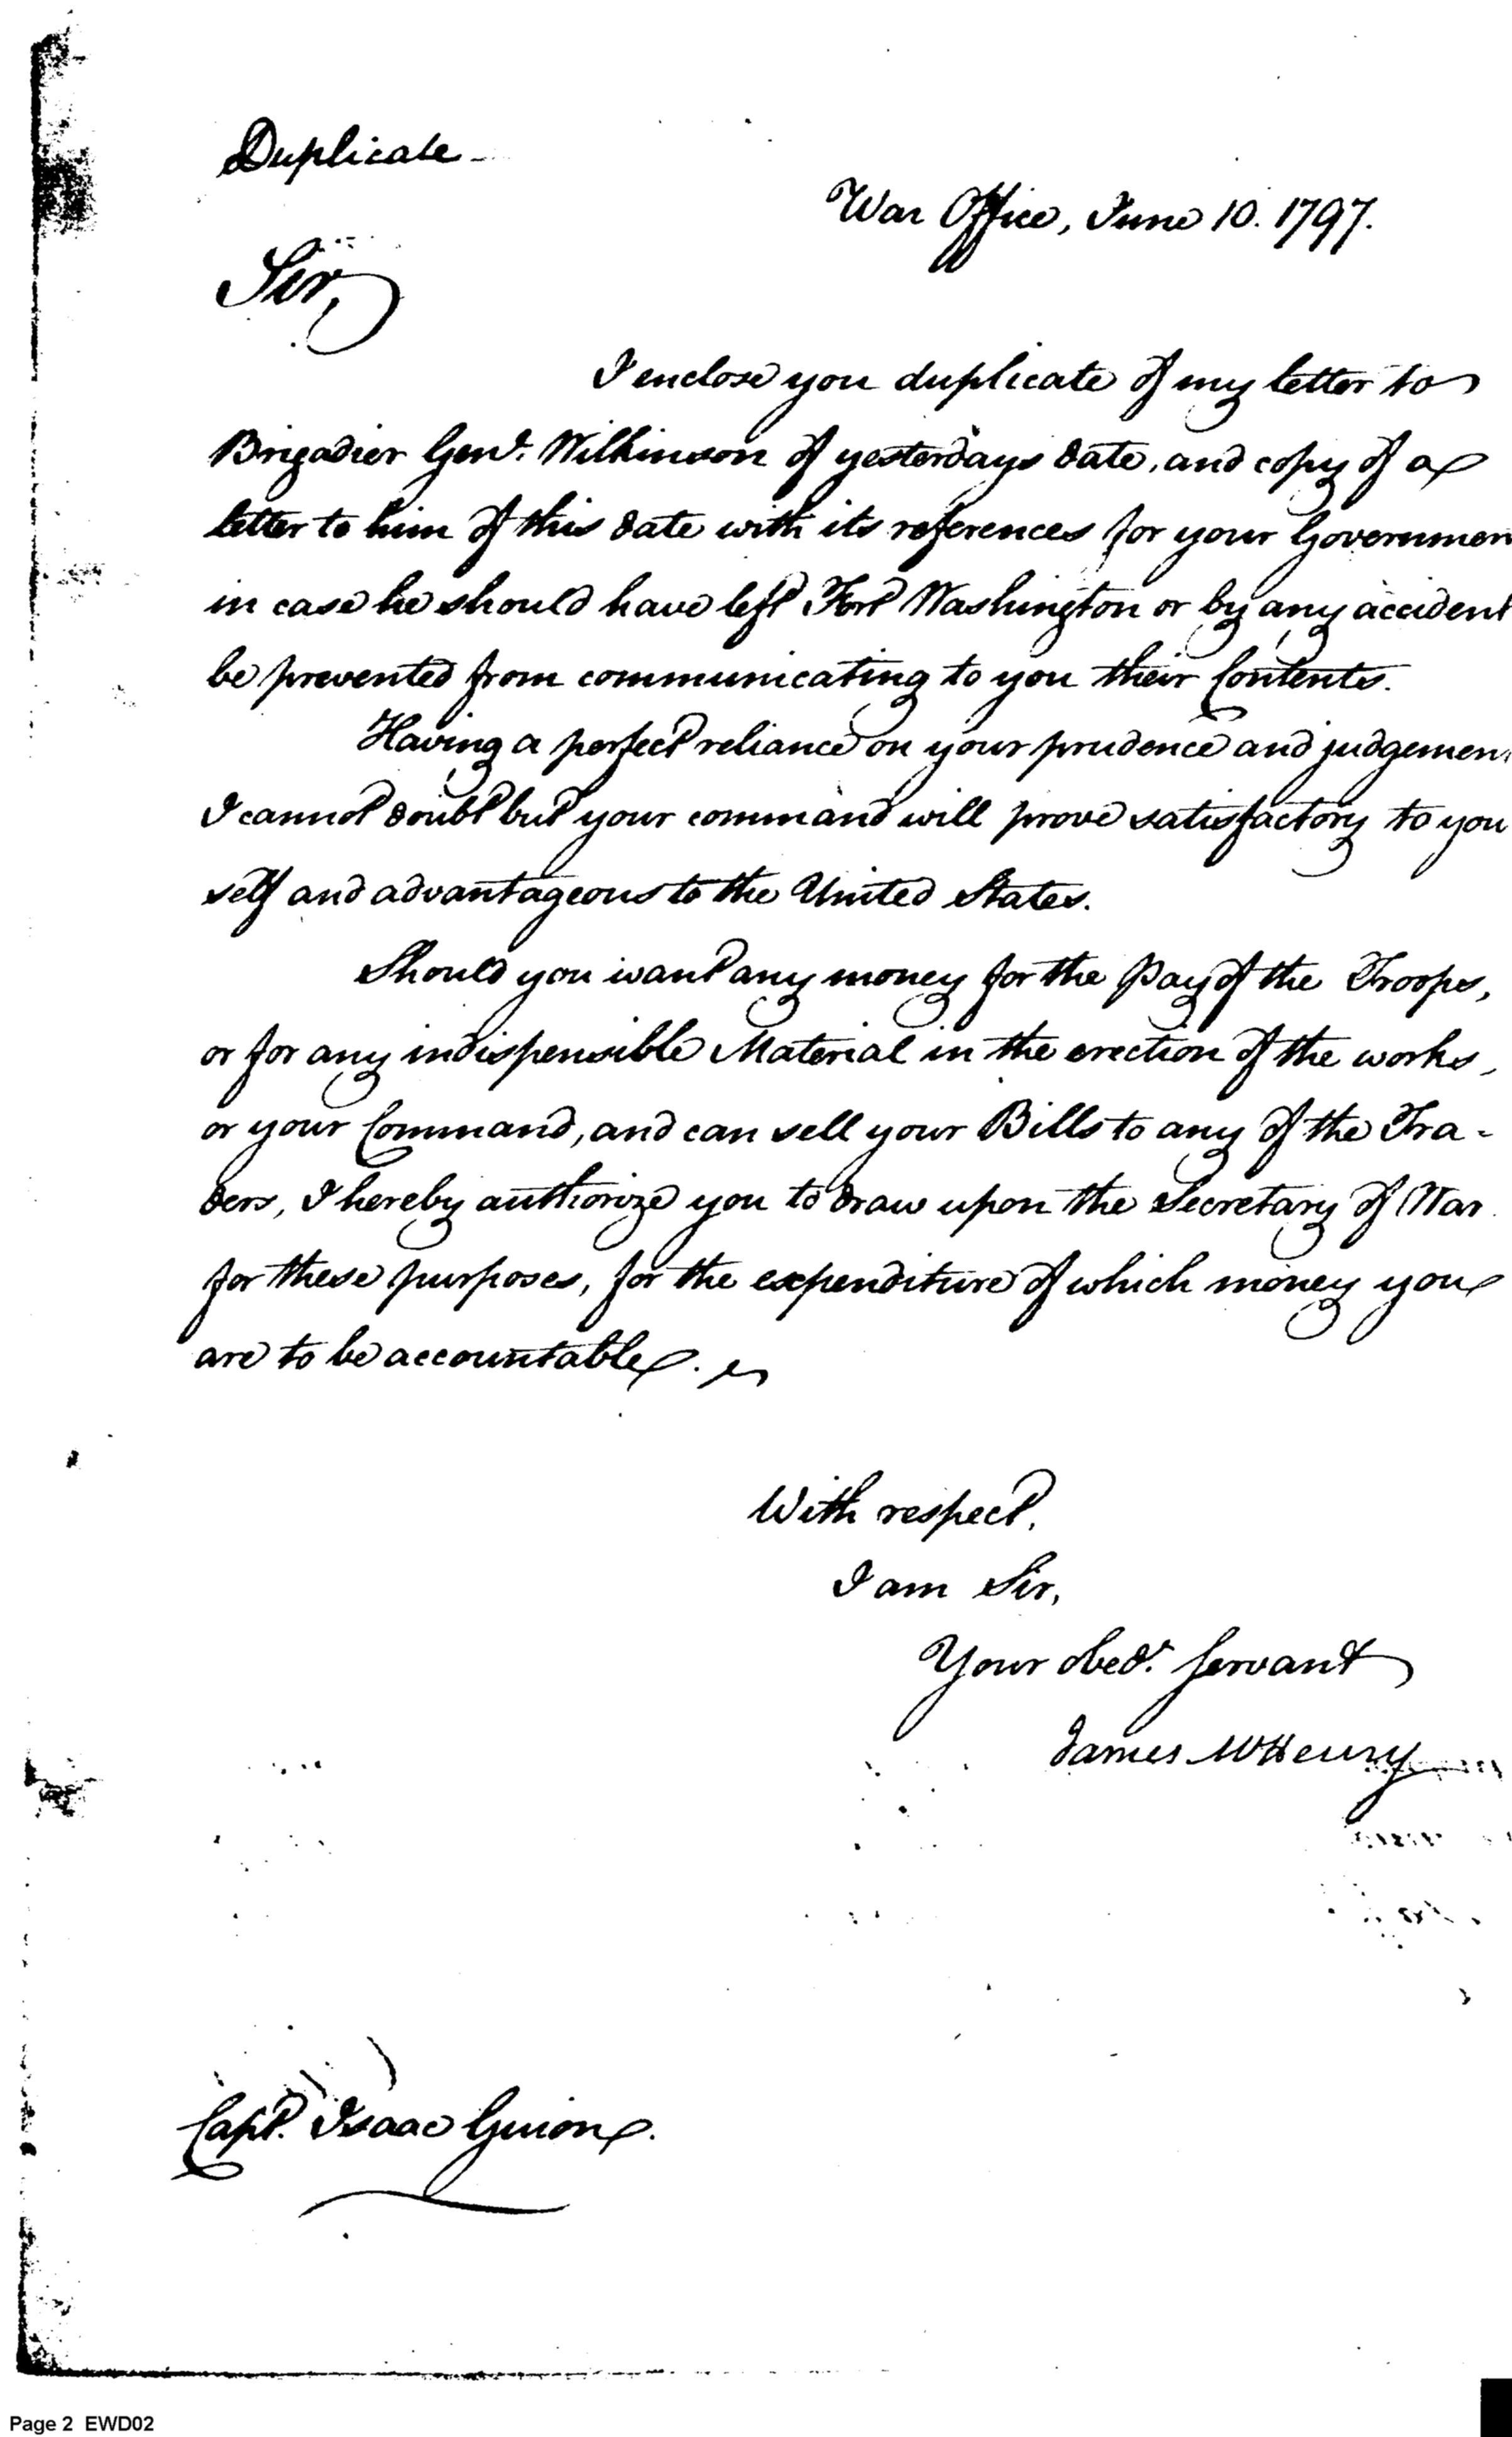 Duplicate
War Office, June 10. 1797.
Sir,
I enclose you duplicate of my letter to
Brigadier Genl. Wilkinson of yesterdays date, and copy of a
letter to him of this date with its references for your Governmen
in case he should have left Fort Washington or by any accident
be prevented from communicating to you their Contents.
Having a perfect reliance on your prudence and judgemen
I cannot doubt but your command will prove satisfactory to you
self and advantageous to the United States.
Should you want any money for the Pay of the Troops,
or for any indispensible Material in the erection of the works,
or your Command, and can sell your Bills to any of the Tra-
ders, I hereby authorize you to draw upon the Secretary of War
for these purposes, for the expenditure of which money you
are to be accountable.
With respect,
I am Sir,
Your obedt. servant
James McHenry
Capt. Isaac Guion.
Page 2 EWD02